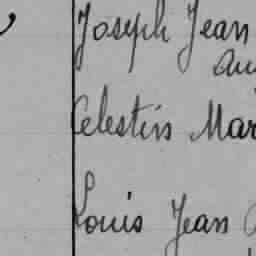 Joseph Jean
Celestin Mar
Louis Jean